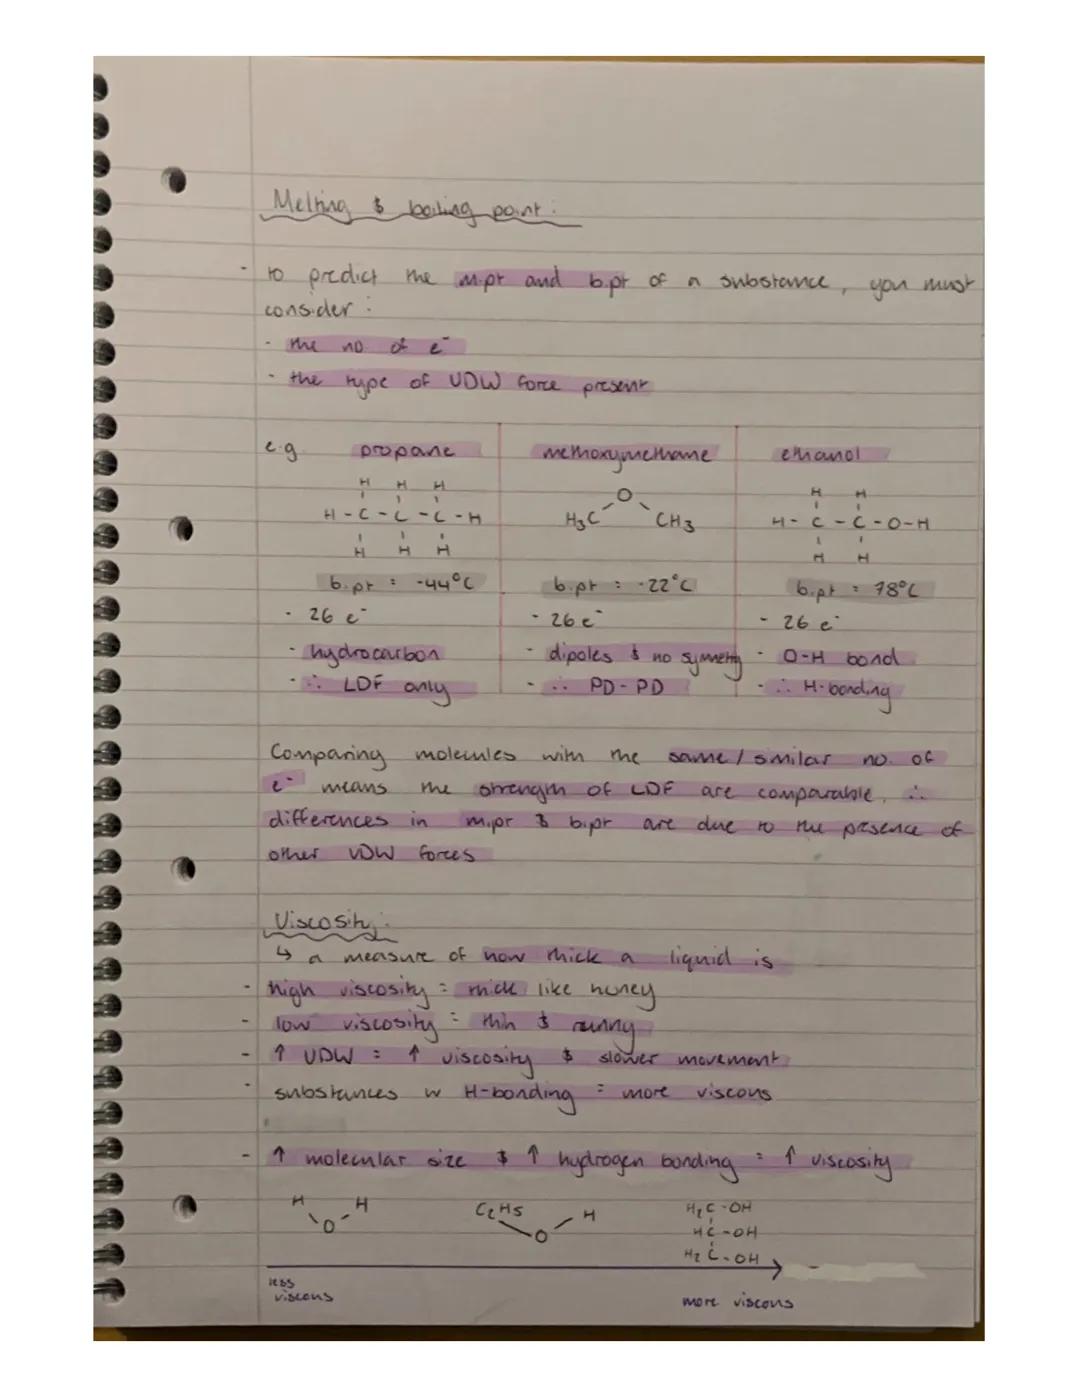 Melting & boiling point :
- to predict the m.pt and b.pt of a substance, you must
consider :
- the no. of e⁻
- the type of VDW force present
e.g. propane methoxymethane ethanol
H H H
H - C - C - C - H
H H H
O
H₃C CH₃
H H
H - C - C - O - H
H H
b.pt = -44°C b.pt = -22°C b.pt = 78°C
- 26 e⁻ - 26 e⁻ - 26 e⁻
- hydrocarbon - dipoles & no symmetry - O-H bond
- ∴ LDF only - ∴ PD-PD - ∴ H-bonding
Comparing molecules with the same / similar no. of
e⁻ means the strength of LDF are comparable, ∴
differences in m.pt & b.pt are due to the presence of
other VDW forces
Viscosity :
↳ a measure of how thick a liquid is
- high viscosity = thick like honey
- low viscosity = thin & runny
- ↑ VDW = ↑ viscosity & slower movement
- substances w H-bonding = more viscous
- ↑ molecular size & ↑ hydrogen bonding = ↑ viscosity
H H
O
C₂H5 H
O
H₂C-OH
HC-OH
H₂C-OH
less
viscous
more viscous